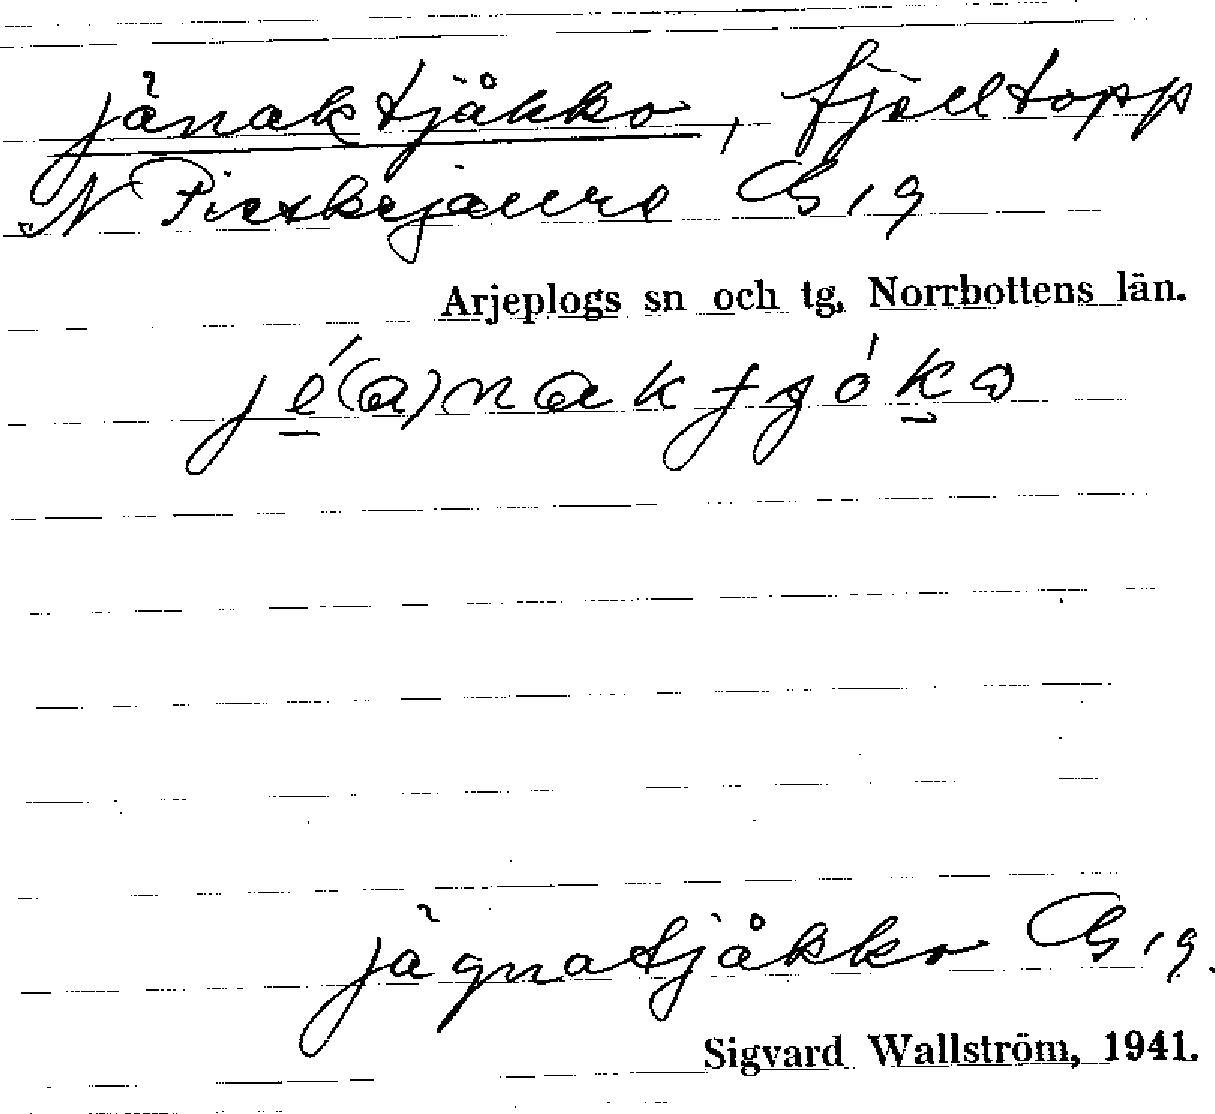 jänaktjåkko, fjälltopp
N Pieskejaure G 19
Arjeplogs sn och tg. Norrbottens län.
jé(a)naktjóko
jägnatjåkko G 19.
Sigvard Wallström, 1941.